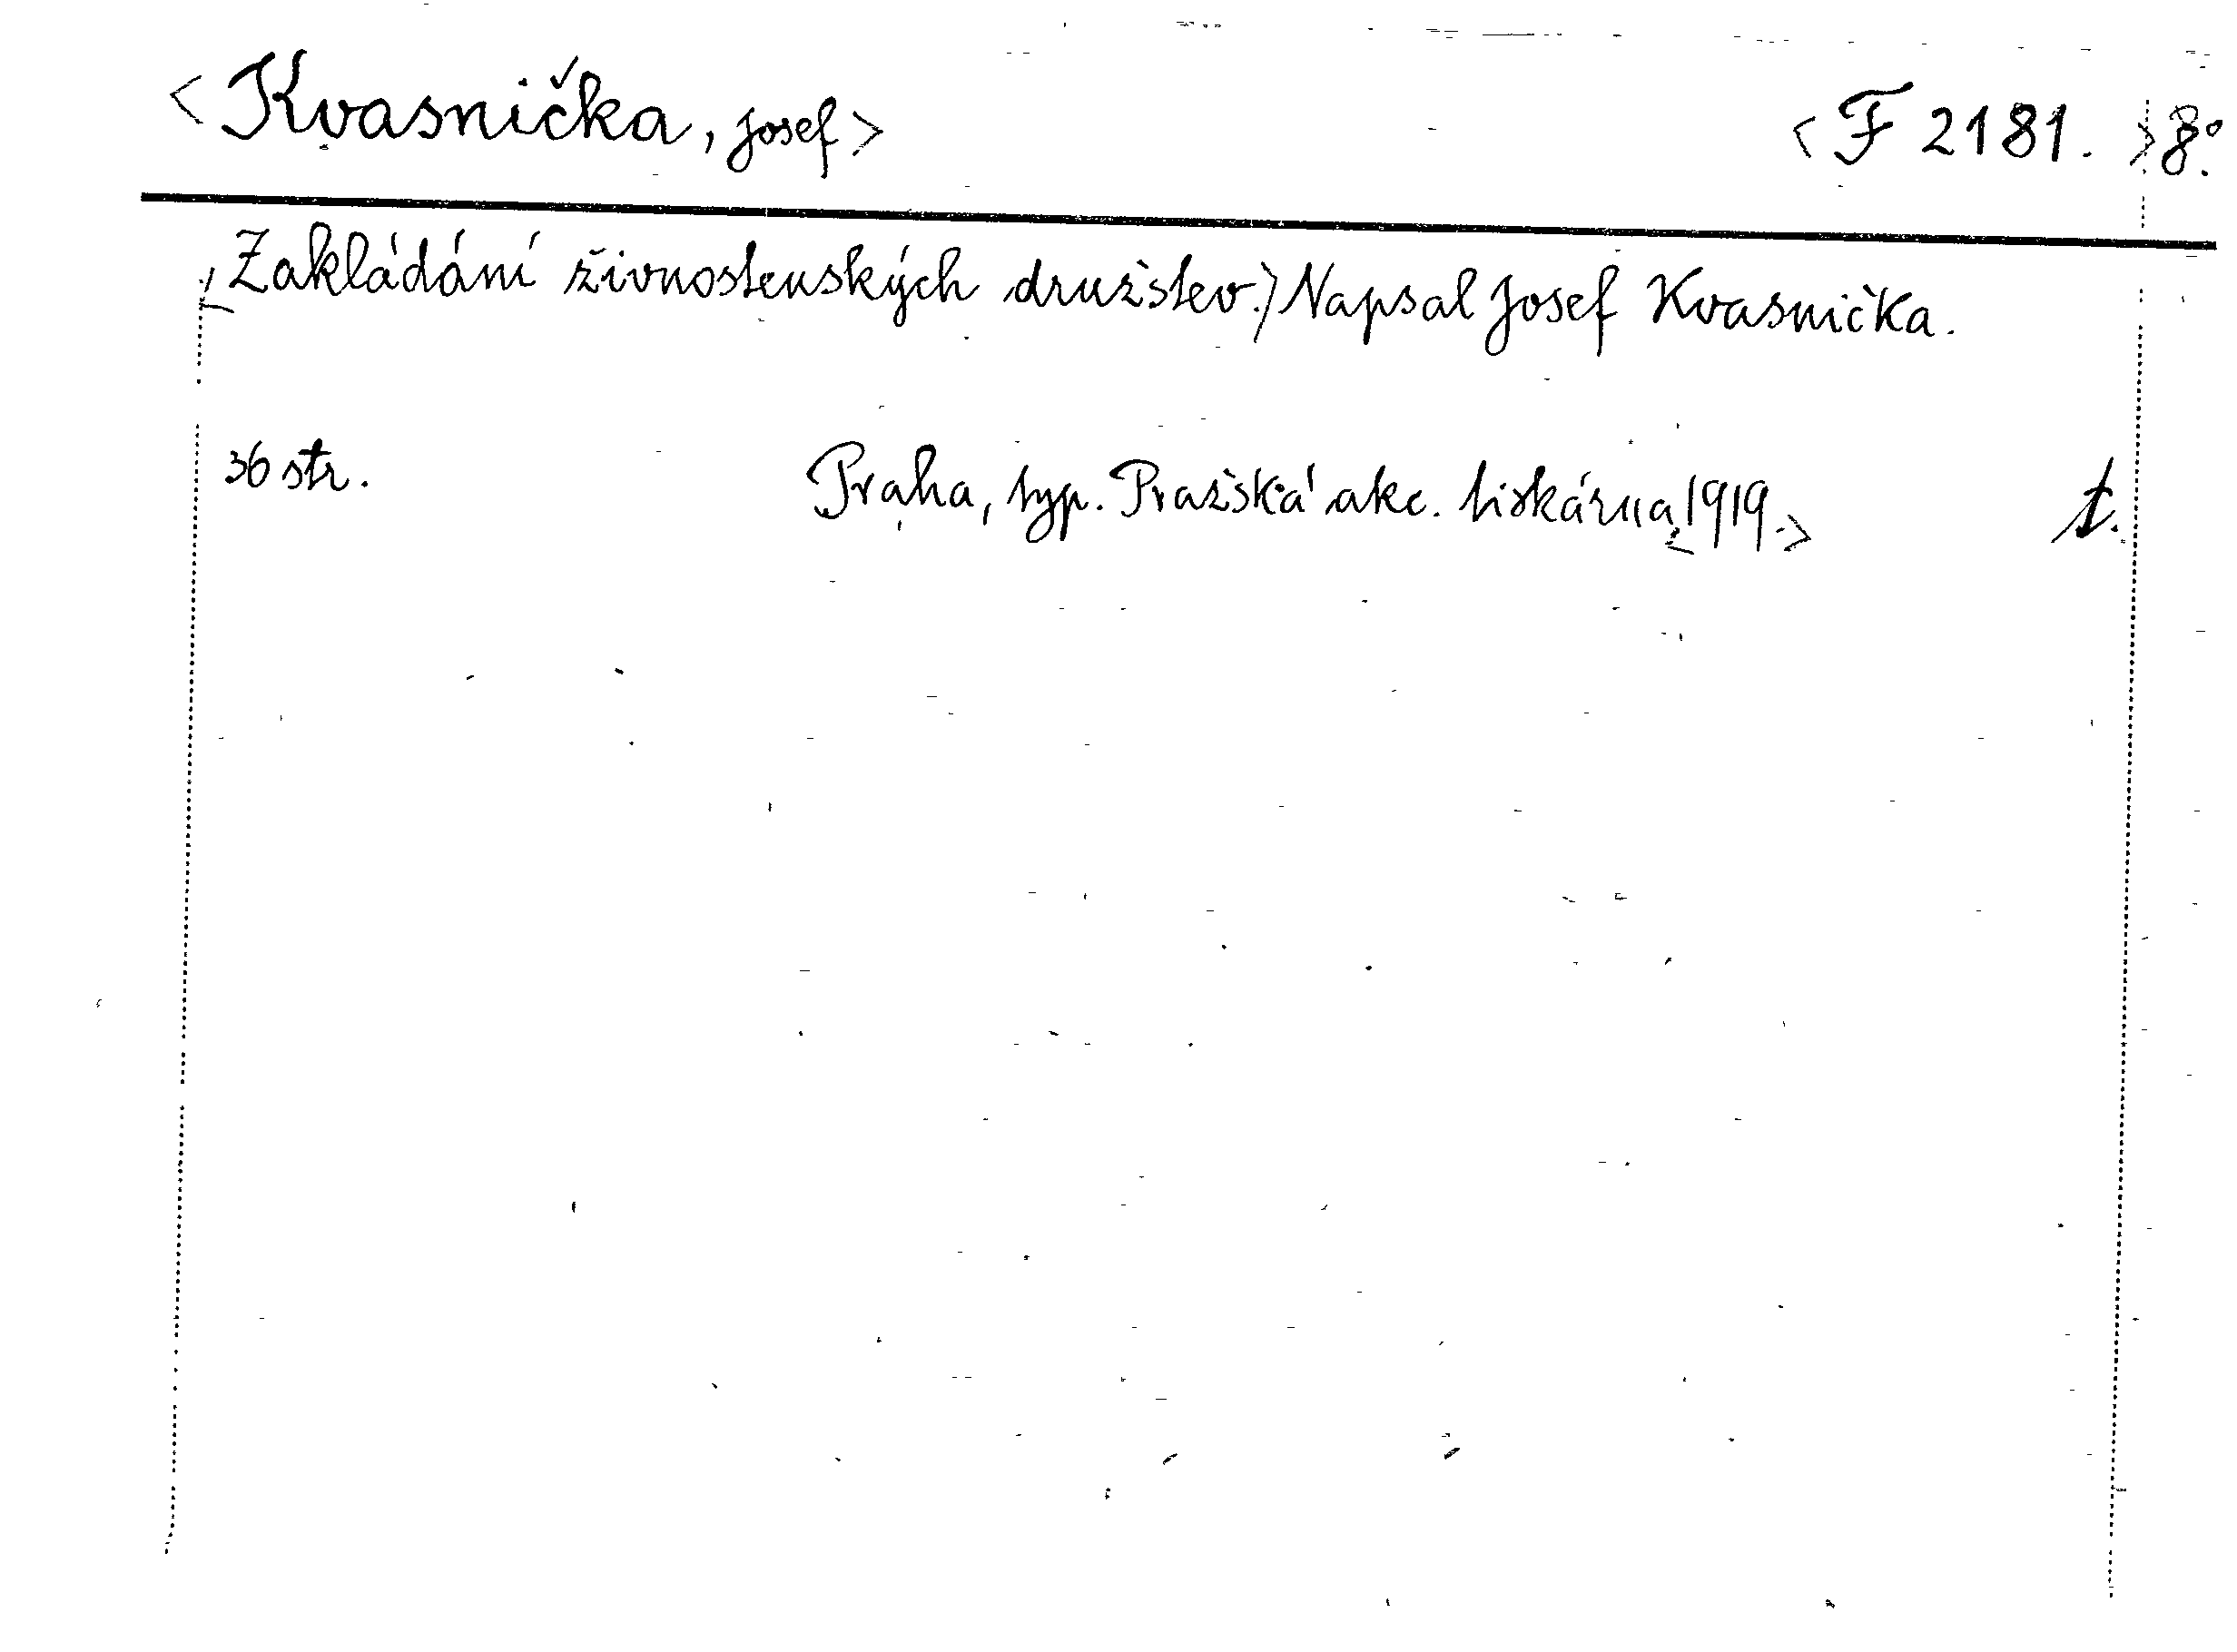 <Kvasnička, Josef> <F 2181.> 8°.
<Zakládání živnostenských družstev.> Napsal Josef Kvasnička.
36 str. Praha, typ. Pražská akc. tiskárna <1919.> t.